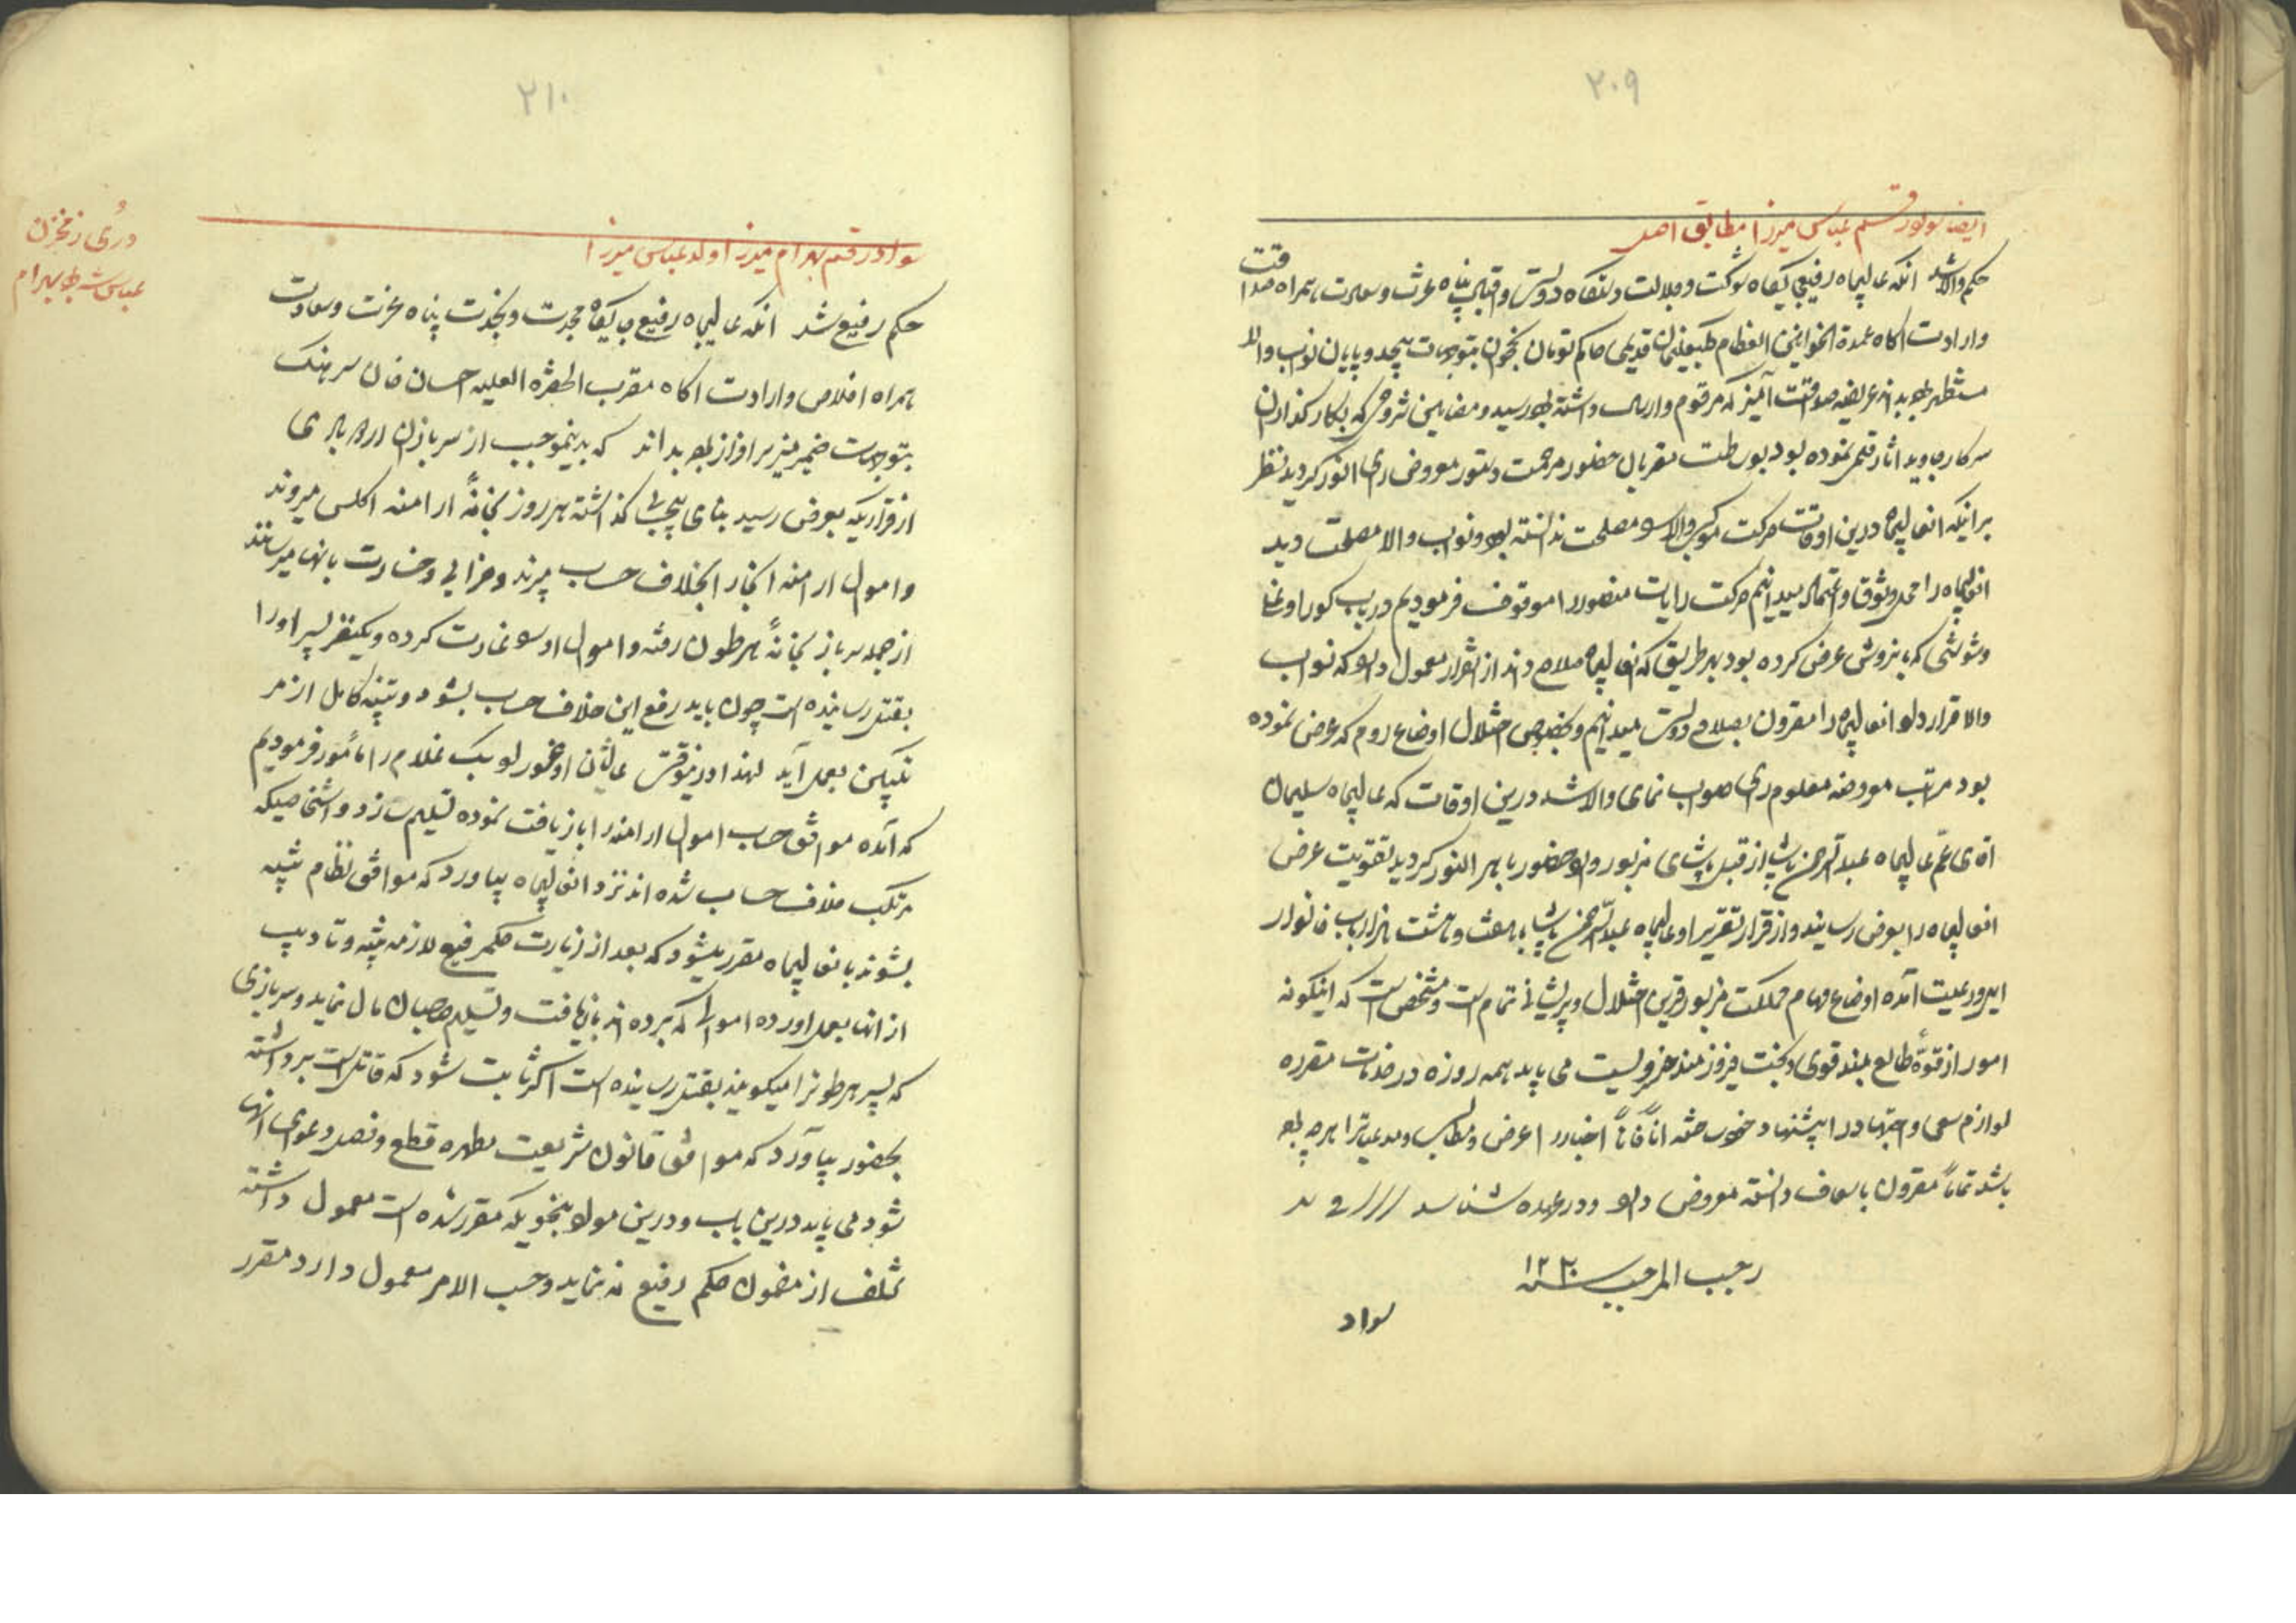 ۲۰۹
ایضا سواد رقم عباس میرزا مطابق اصل
حکم والا شد آنکه عالیجاه رفیع جایگاه شوکت و جلالت دستگاه دولت و اقبال پناه عزت و سعادت همراه صداقت
وارادت آکاه عمدة الخوانین العظام کلبعلیخان قدیمی حاکم تومان نخجوان بتوجهات بیحد و پایان نواب والا
مستظهر بوده بداند عریضه صداقت آمیز که مرقوم وارسال داشته بود رسید و مضامین شروحی که بکارگذاران
سرکار جاوید آثار قلمی نموده بود بوساطت مقربان حضور مرحمت دستور معروض رای انور گردید نظر
براینکه انعالیجاه درین اوقات حرکت موکب والا را مصلحت ندانسته بود و نواب والا مصلحت دید
انعالیجاه را محل وثوق و اعتماد میدانیم حرکت رایات منصور را موقوف فرمودیم در باب کور اوغلی
و شوشی که بنزوش عرض کرده بود بهر طریق که انعالیجاه صلاح داند از انقرار معمول دارد که نواب
والا قرارداد انعالیجاه را مقرون بصلاح دولت میدانیم و بخصوص اختلال اوضاع روم که عرض نموده
بود مراتب معروضه معلوم رای صواب نمای والا شد درین اوقات که عالیجاه سلیمان
اقای عم عالیجاه عبدالرحمن پاشا از قبل پاشای مزبور وارد حضور باهر النور گردید تقویت عرض
انعالیجاه را بعرض رسانید و از قرار تقریر او عالیجاه عبدالرحمن پاشا با هفت و هشت هزار باب خانوار
ایل و رعیت آمده اوضاع و مهام مملکت مزبور قرین اختلال و پریشانی تمام است و مشخص است که اینگونه
امور از قوّه طالع بلند قوی و بخت فیروزمند خسرویست می باید همه روزه در خدمات مقرره
لوازم سعی و اجتهاد را پیشنهاد خود ساخته آناً فآناً اخبار را عرض و مطالب و مدعیاترا هرچه بوده
باشد تماماً مقرون باسعاف دانسته معروض دارد و در عهده شناسد
رجب المرجب سنه ۱۲۲۰
سواد
۲۱۰
سواد رقم بهرام میرزا ولد عباس میرزا
دری ز مخزن
عباس شه بهرام
حکم رفیع شد آنکه عالیجاه رفیع جایگاه مجدت و نجدت پناه عزت و سعادت
همراه اخلاص وارادت آکاه مقرب الحضرة العلیه احسان خان سرهنک
بتوجهات ضمیر منیر سرافراز بوده بداند که بدینموجب از سربازان اردوبادی
از قراریکه بعرض رسید بنای بیحسابی گذاشته هر روز بخانهٔ ارامنه اکلس میروند
و اموال ارامنه انجا را بخلاف حساب میبرند و خرابی و خسارت بانها میرسانند
از جمله سرباز بخانهٔ هرطون رفته و اموال او را غارت کرده و یکنفر پسر او را
بقتل رسانیده است چون باید رفع این خلاف حساب بشود و تنبیه کامل از مر
تکبین بعمل آید لهذا درینوقت عالیشان اوغورلو بک غلام را مأمور فرمودیم
که آمده موافق حساب اموال ارامنه را بازیافت نموده تسلیم سازد و اشخاصیکه
مرتکب خلاف حساب شده اند نزد انعالیجاه بیاورد که موافق نظام تنبیه
بشوند بانعالیجاه مقرر میشود که بعد از زیارت حکم رفیع لازمه تنبیه و تادیب
از انها بعمل اورده اموالی که برده اند بازیافت و تسلیم صاحبان مال نماید و سربازی
که پسر هرطونرا میگویند بقتل رسانیده است اگر ثابت شود که قاتل است برداشته
بحضور بیاورد که موافق قانون شریعت مطهره قطع و فصل دعوای انها
شود می باید درین باب و درین مواد بنحویکه مقرر شده است معمول داشته
تخلف از مضمون حکم رفیع نه نماید و حسب الامر معمول دارد مقرر